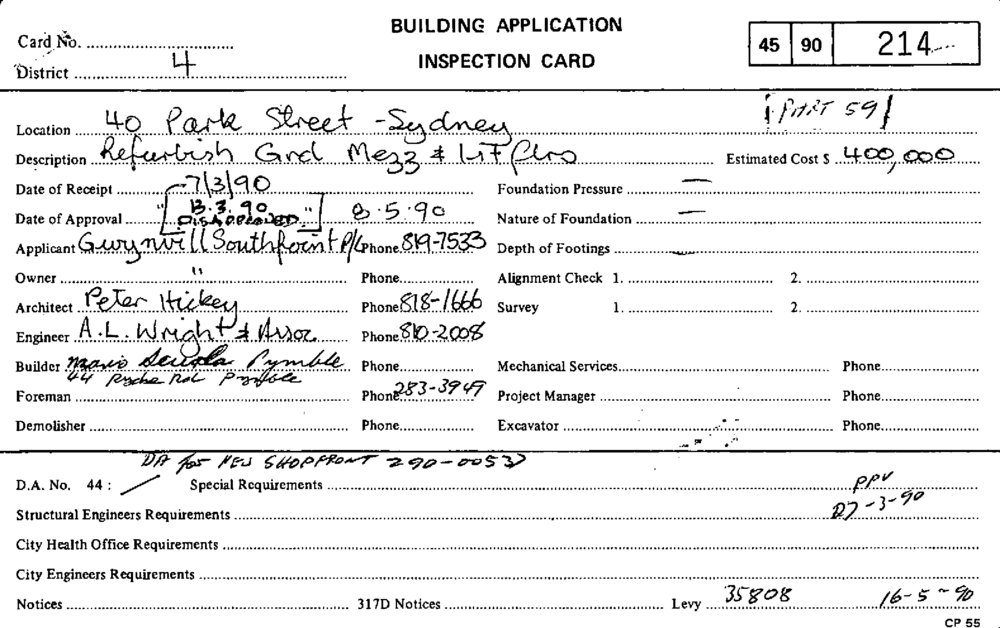 BUILDING APPLICATION
INSPECTION CARD
Card No.
District 4
45 90 214
PART 59
Location 40 Park Street - Sydney
Description Refurbish Grd Mezz & Lift flrs Estimated Cost $ 400,000
Date of Receipt 7/3/90 Foundation Pressure —
Date of Approval "13.3.90 DISAPPROVED" 8.5.90 Nature of Foundation —
Applicant Gwynvill Southpoint P/L Phone 819-7533 Depth of Footings —
Owner " Phone Alignment Check 1. 2.
Architect Peter Hickey Phone 818-1666 Survey 1. 2.
Engineer A.L. Wright & Assoc. Phone 810-2008
Builder Mario Pymble Phone Mechanical Services Phone
44 Rd Pymble
Foreman Phone 283-3949 Project Manager Phone
Demolisher Phone Excavator Phone
DA for NEW SHOPFRONT 290-0053
D.A. No. 44 : / Special Requirements PPV
Structural Engineers Requirements 27-3-90
City Health Office Requirements
City Engineers Requirements
Notices 317D Notices Levy 35808 16-5-90
CP 55